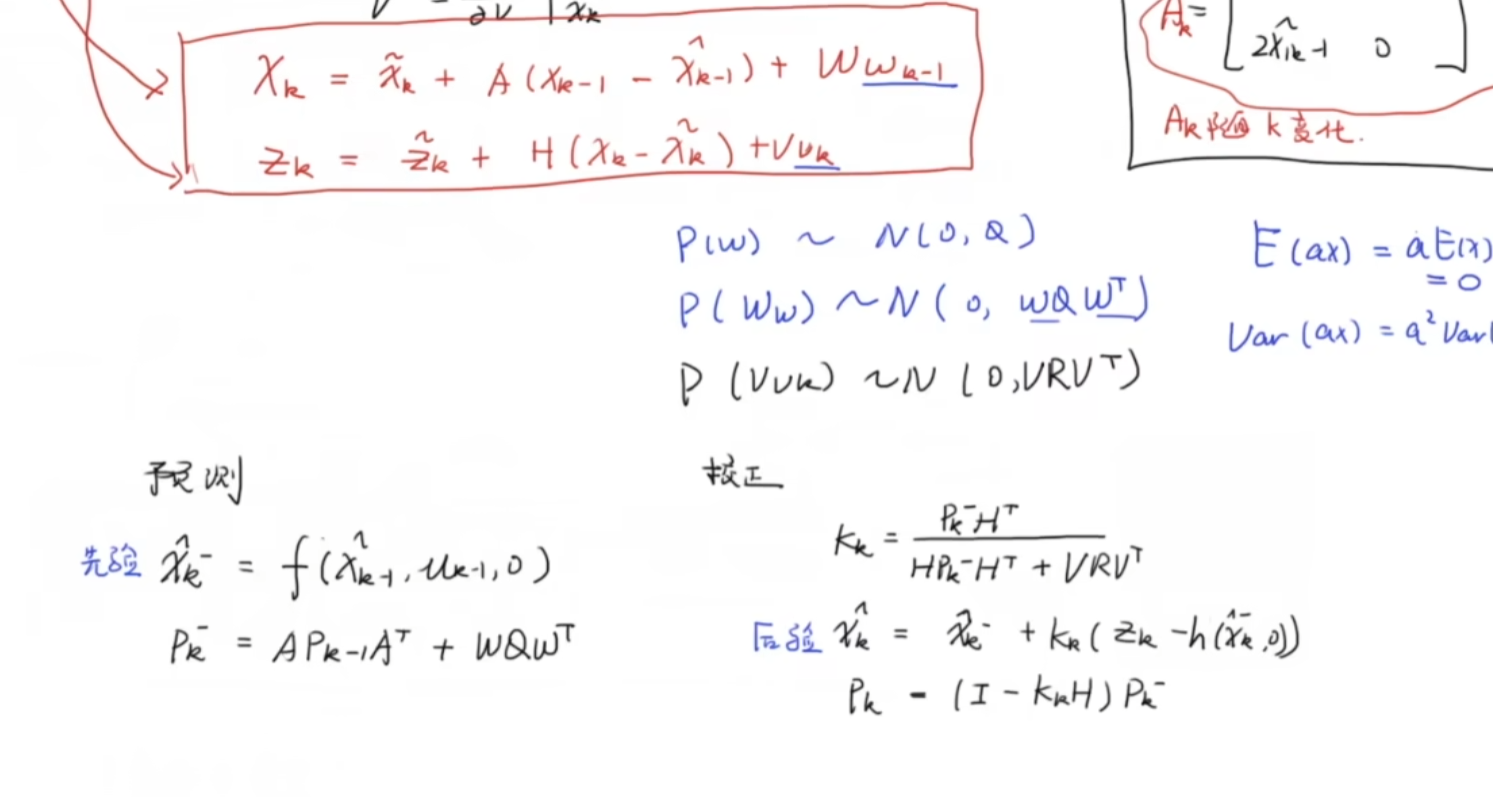 ∂V | x̃ₖ
Xₖ = x̃ₖ + A(xₖ₋₁ − x̂ₖ₋₁) + Wwₖ₋₁
zₖ = z̃ₖ + H(xₖ − x̃ₖ) + Vvₖ
Aₖ = [2x̂₁ₖ₋₁ 0]
Aₖ 随 k 变化.
P(w) ~ N(0, Q)
P(Ww) ~ N(0, WQWᵀ)
P(Vvₖ) ~ N(0, VRVᵀ)
E(ax) = aE(x)
= 0
Var(ax) = a²Var(
预测
先验 x̂ₖ⁻ = f(x̂ₖ₋₁, uₖ₋₁, 0)
Pₖ⁻ = APₖ₋₁Aᵀ + WQWᵀ
校正
Kₖ = Pₖ⁻Hᵀ / HPₖ⁻Hᵀ + VRVᵀ
后验 x̂ₖ = x̂ₖ⁻ + Kₖ(zₖ − h(x̂ₖ⁻, 0))
Pₖ = (I − KₖH)Pₖ⁻